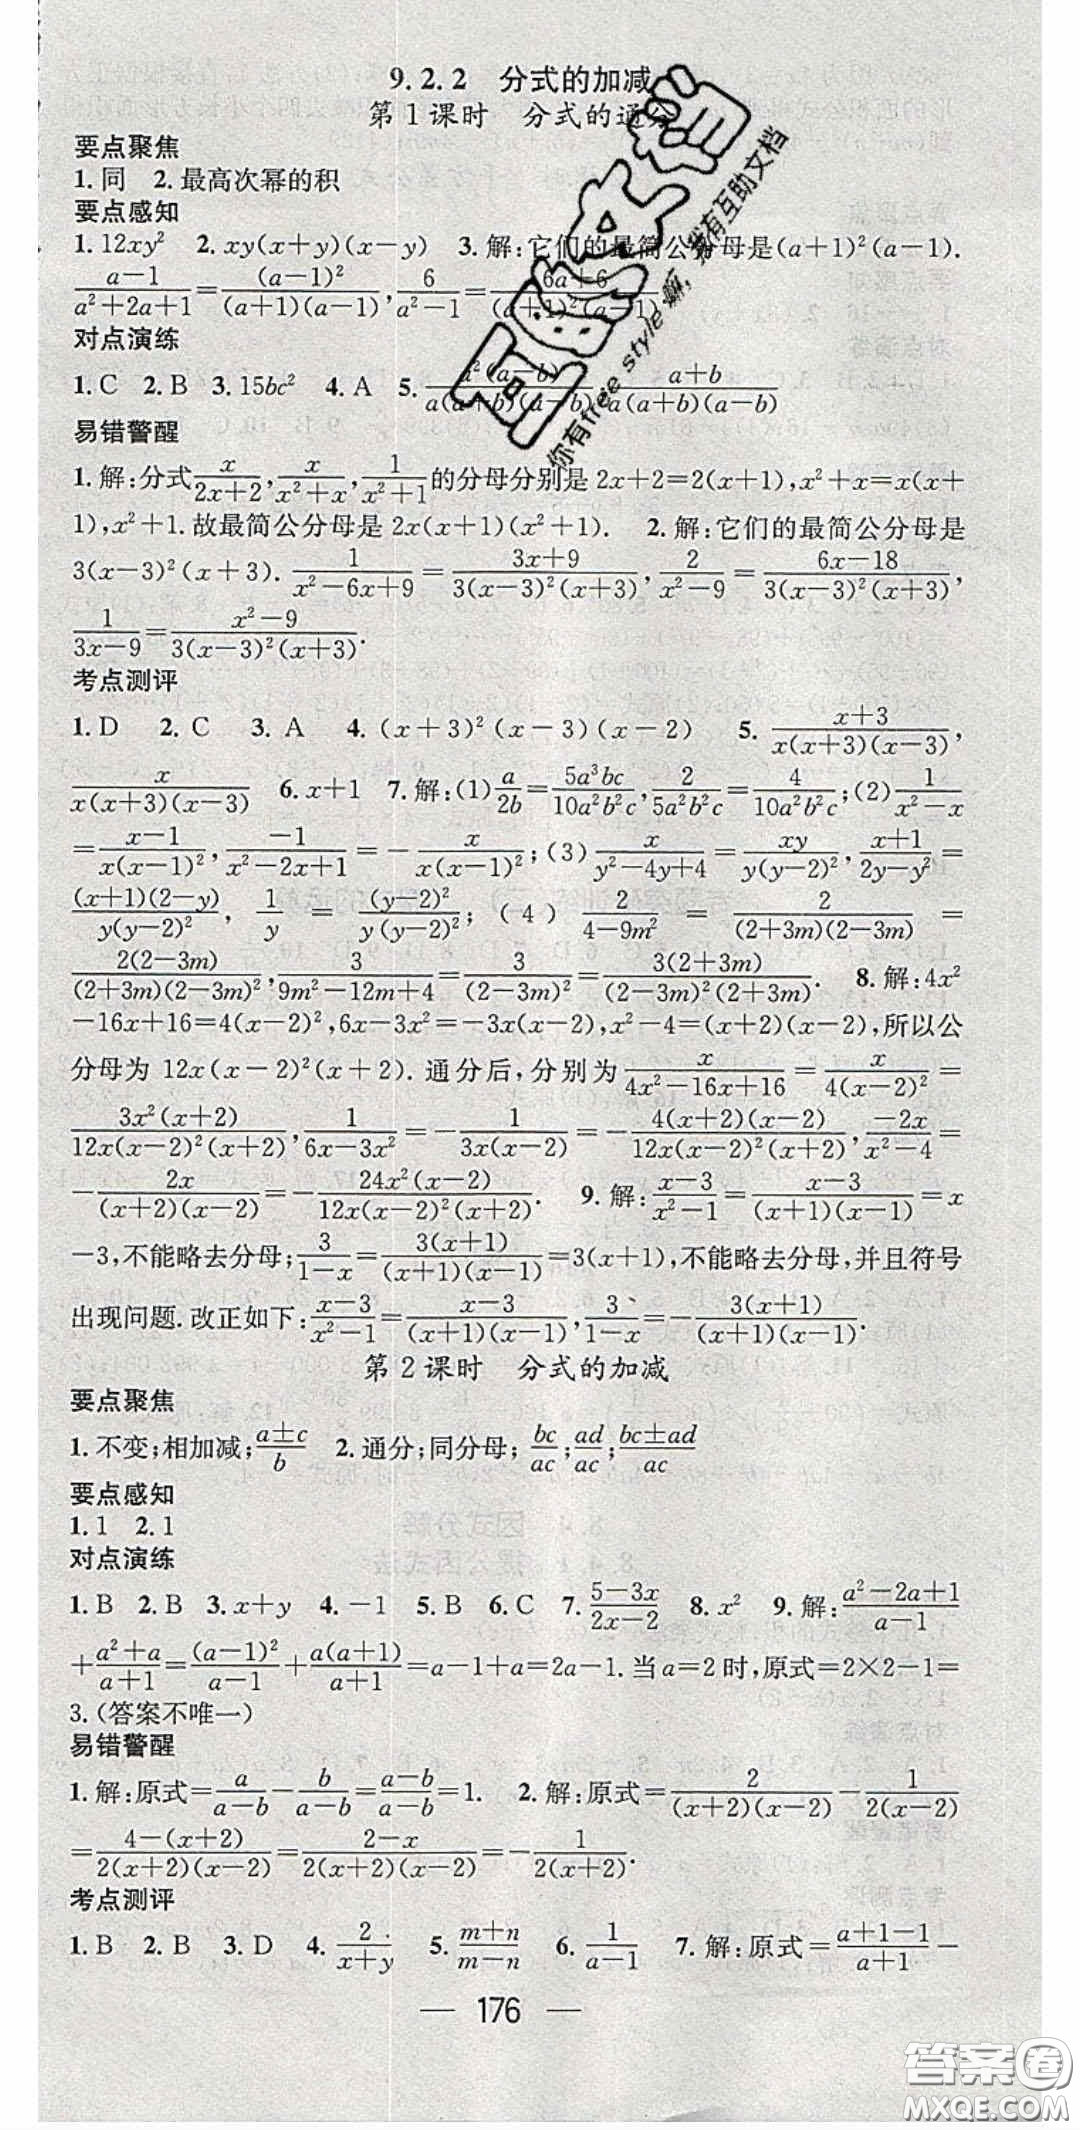 9.2.2 分式的加减
第1课时 分式的通分
要点聚焦
1.同 2.最高次幂的积
要点感知
1.12xy² 2.xy(x+y)(x-y) 3.解:它们的最简公分母是(a+1)²(a-1).
(a-1)/(a²+2a+1)=(a-1)²/((a+1)²(a-1)),6/(a²-1)=(6a+6)/((a+1)²(a-1))
对点演练
1.C 2.B 3.15bc² 4.A 5.a²(a-b)/(a(a+b)(a-b)) (a+b)/(a(a+b)(a-b))
易错警醒
1.解:分式x/(2x+2),x/(x²+x),1/(x²+1)的分母分别是2x+2=2(x+1),x²+x=x(x+
1),x²+1.故最简公分母是2x(x+1)(x²+1). 2.解:它们的最简公分母是
3(x-3)²(x+3).1/(x²-6x+9)=(3x+9)/(3(x-3)²(x+3)),2/(x²-9)=(6x-18)/(3(x-3)²(x+3)),
1/(3x-9)=(x²-9)/(3(x-3)²(x+3)).
考点测评
1.D 2.C 3.A 4.(x+3)²(x-3)(x-2) 5.(x+3)/(x(x+3)(x-3)),
x/(x(x+3)(x-3)) 6.x+1 7.解:(1)a/2b=5a³bc/10a²b²c,2/5a²b²c=4/10a²b²c;(2)1/(x²-x)
=(x-1)/(x(x-1)²),-1/(x²-2x+1)=-x/(x(x-1)²);(3)x/(y²-4y+4)=xy/(y(y-2)²),(x+1)/(2y-y²)=
(x+1)(2-y)/(y(y-2)²),1/y=(y-2)²/(y(y-2)²);(4)2/(4-9m²)=2/((2+3m)(2-3m))=
2(2-3m)/((2+3m)(2-3m)²),3/(9m²-12m+4)=3/(2-3m)²=3(2+3m)/((2-3m)²(2+3m)). 8.解:4x²
-16x+16=4(x-2)²,6x-3x²=-3x(x-2),x²-4=(x+2)(x-2),所以公
分母为12x(x-2)²(x+2).通分后,分别为x/(4x²-16x+16)=x/(4(x-2)²)=
3x²(x+2)/(12x(x-2)²(x+2)),1/(6x-3x²)=-1/(3x(x-2))=-4(x+2)(x-2)/(12x(x-2)²(x+2)),-2x/(x²-4)=
-2x/((x+2)(x-2))=-24x²(x-2)/(12x(x-2)²(x+2)). 9.解:(x-3)/(x²-1)=(x-3)/((x+1)(x-1))=x
-3,不能略去分母;3/(1-x)=3(x+1)/((x+1)(x-1))=3(x+1),不能略去分母,并且符号
出现问题.改正如下:(x-3)/(x²-1)=(x-3)/((x+1)(x-1)),3/(1-x)=-3(x+1)/((x+1)(x-1)).
第2课时 分式的加减
要点聚焦
1.不变;相加减;(a±c)/b 2.通分;同分母;bc/ac;ad/ac;(bc±ad)/ac
要点感知
1.1 2.1
对点演练
1.B 2.B 3.x+y 4.-1 5.B 6.C 7.(5-3x)/(2x-2) 8.x² 9.解:(a²-2a+1)/(a-1)
+(a²+a)/(a+1)=(a-1)²/(a-1)+a(a+1)/(a+1)=a-1+a=2a-1.当a=2时,原式=2×2-1=
3.(答案不唯一)
易错警醒
1.解:原式=a/(a-b)-b/(a-b)=(a-b)/(a-b)=1. 2.解:原式=2/((x+2)(x-2))-1/(2(x-2))
=(4-(x+2))/(2(x+2)(x-2))=(2-x)/(2(x+2)(x-2))=-1/(2(x+2)).
考点测评
1.B 2.B 3.D 4.2/(x+y) 5.(m+n)/(m-n) 6.1/(a-1) 7.解:原式=(a+1-1)/(a+1)-
— 176 —
答案圈
MXQE.COM
你有free style嘛,我有互助文档